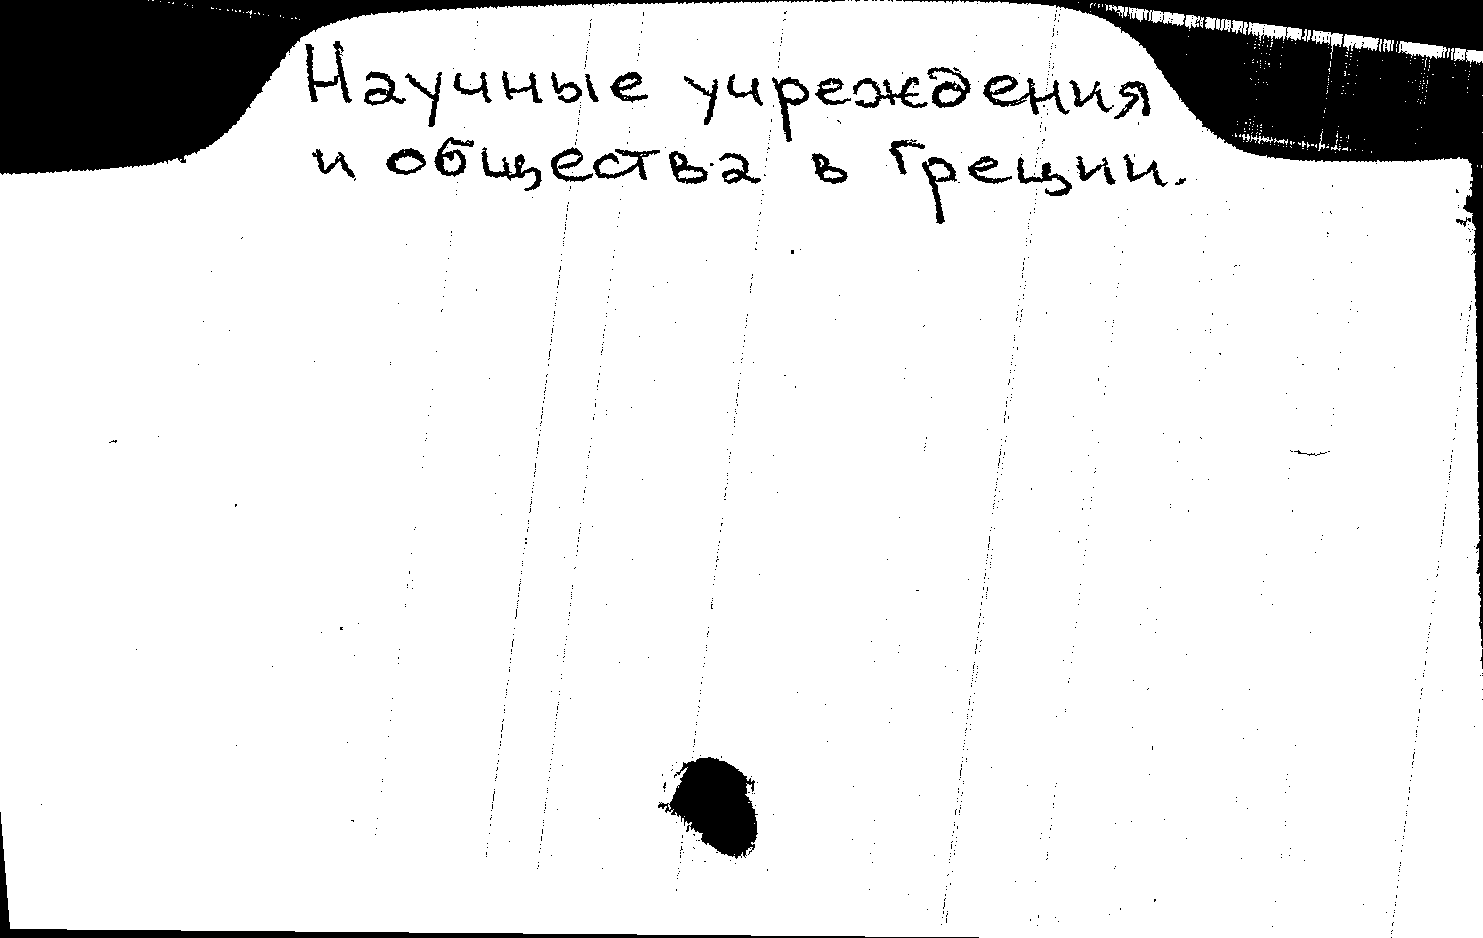 Научные учреждения
и общества в Греции.